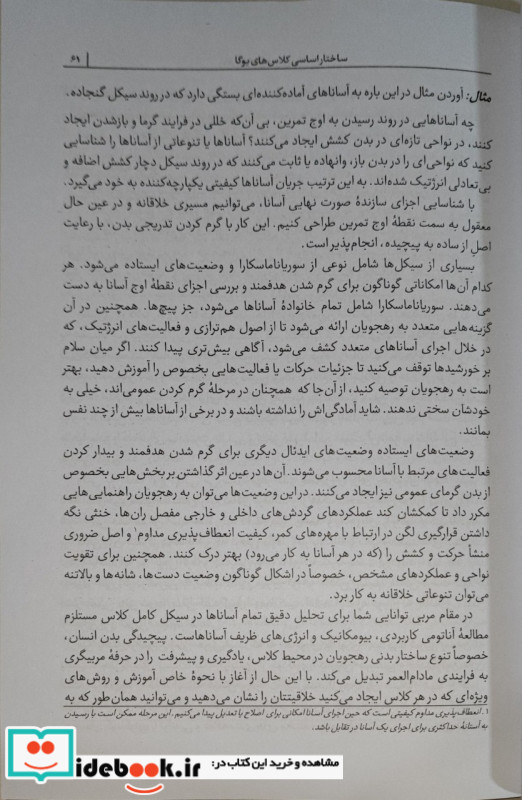 ساختار اساسی کلاس‌های یوگا | ۶۹
مثال: آوردن مثال در این باره به آساناهای آماده‌کننده‌ای بستگی دارد که در روند سیکل گنجاده.
چه آساناهایی در روند رسیدن به اوج تمرین، بی‌آن‌که خللی در فرایند گرما و بازشدن ایجاد
کنند، در نواحی تازه‌ای در بدن کشش ایجاد می‌کنند؟ آساناها یا تنوعاتی از آساناها را شناسایی
کنید که نواحی‌ای را در بدن باز، وانهاده یا ثابت می‌کنند که در روند سیکل دچار کشش اضافه و
بی‌تعادلی انرژتیک شده‌اند. به این ترتیب جریان آساناها کیفیتی یکپارچه‌کننده به خود می‌گیرد.
با شناسایی اجزای سازندهٔ صورت نهایی آسانا، می‌توانیم مسیری خلاقانه و در عین حال
معقول به سمت نقطهٔ اوج تمرین طراحی کنیم. این کار با گرم کردن تدریجی بدن، با رعایت
اصل از ساده به پیچیده، انجام‌پذیر است.
بسیاری از سیکل‌ها شامل نوعی از سوریاناماسکارا و وضعیت‌های ایستاده می‌شود. هر
کدام آن‌ها امکاناتی گوناگون برای گرم شدن هدفمند و بررسی اجزای نقطهٔ اوج آسانا به دست
می‌دهند. سوریاناماسکارا شامل تمام خانوادهٔ آساناها می‌شود، جز پیچ‌ها. همچنین در آن
گزینه‌هایی متعدد به رهجویان ارائه می‌شود تا از اصول هم‌ترازی و فعالیت‌های انرژتیک، که
در خلال اجرای آساناهای متعدد کشف می‌شود، آگاهی بیش‌تری پیدا کنند. اگر میان سلام
بر خورشیدها توقف می‌کنید تا جزئیات حرکات یا فعالیت‌هایی بخصوص را آموزش دهید، بهتر
است به رهجویان توصیه کنید، از آن‌جا که همچنان در مرحلهٔ گرم کردن عمومی‌اند، خیلی به
خودشان سختی ندهند. شاید آمادگی‌اش را نداشته باشند و در برخی از آساناها بیش از چند نفس
بمانند.
وضعیت‌های ایستاده وضعیت‌های ایدئال دیگری برای گرم شدن هدفمند و بیدار کردن
فعالیت‌های مرتبط با آسانا محسوب می‌شوند. آن‌ها در عین اثر گذاشتن بر بخش‌هایی بخصوص
از بدن گرمای عمومی نیز ایجاد می‌کنند. در این وضعیت‌ها می‌توان به رهجویان راهنمایی‌هایی
مکرر داد تا کمکشان کند عملکردهای گردش‌های داخلی و خارجی مفصل ران‌ها، خنثی نگه
داشتن قرارگیری لگن در ارتباط با مهره‌های کمر، کیفیت انعطاف‌پذیری مداوم۱ و اصل ضروری
منشأ حرکت و کشش را (که در هر آسانا به کار می‌رود) بهتر درک کنند. همچنین برای تقویت
نواحی و عملکردهای مشخص، خصوصاً در اشکال گوناگون وضعیت دست‌ها، شانه‌ها و بالاتنه
می‌توان تنوعاتی خلاقانه به کار برد.
در مقام مربی توانایی شما برای تحلیل دقیق تمام آساناها در سیکل کامل کلاس مستلزم
مطالعهٔ آناتومی کاربردی، بیومکانیک و انرژی‌های ظریف آساناهاست. پیچیدگی بدن انسان،
خصوصاً تنوع ساختار بدنی رهجویان در محیط کلاس، یادگیری و پیشرفت را در حرفهٔ مربیگری
به فرایندی مادام‌العمر تبدیل می‌کند. با این حال از آغاز با نحوهٔ خاص آموزش و روش‌های
ویژه‌ای که در هر کلاس ایجاد می‌کنید خلاقیتتان را نشان می‌دهید و می‌توانید همان‌طور که به
۱. انعطاف‌پذیری مداوم کیفیتی است که حین اجرای آسانا امکانی برای اصلاح یا تعدیل پیدا می‌کنیم. این مرحله ممکن است با رسیدن
به آستانهٔ حداکثری برای اجرای یک آسانا در تقابل باشد.
مشاهده و خرید این کتاب در:
idebook.ir